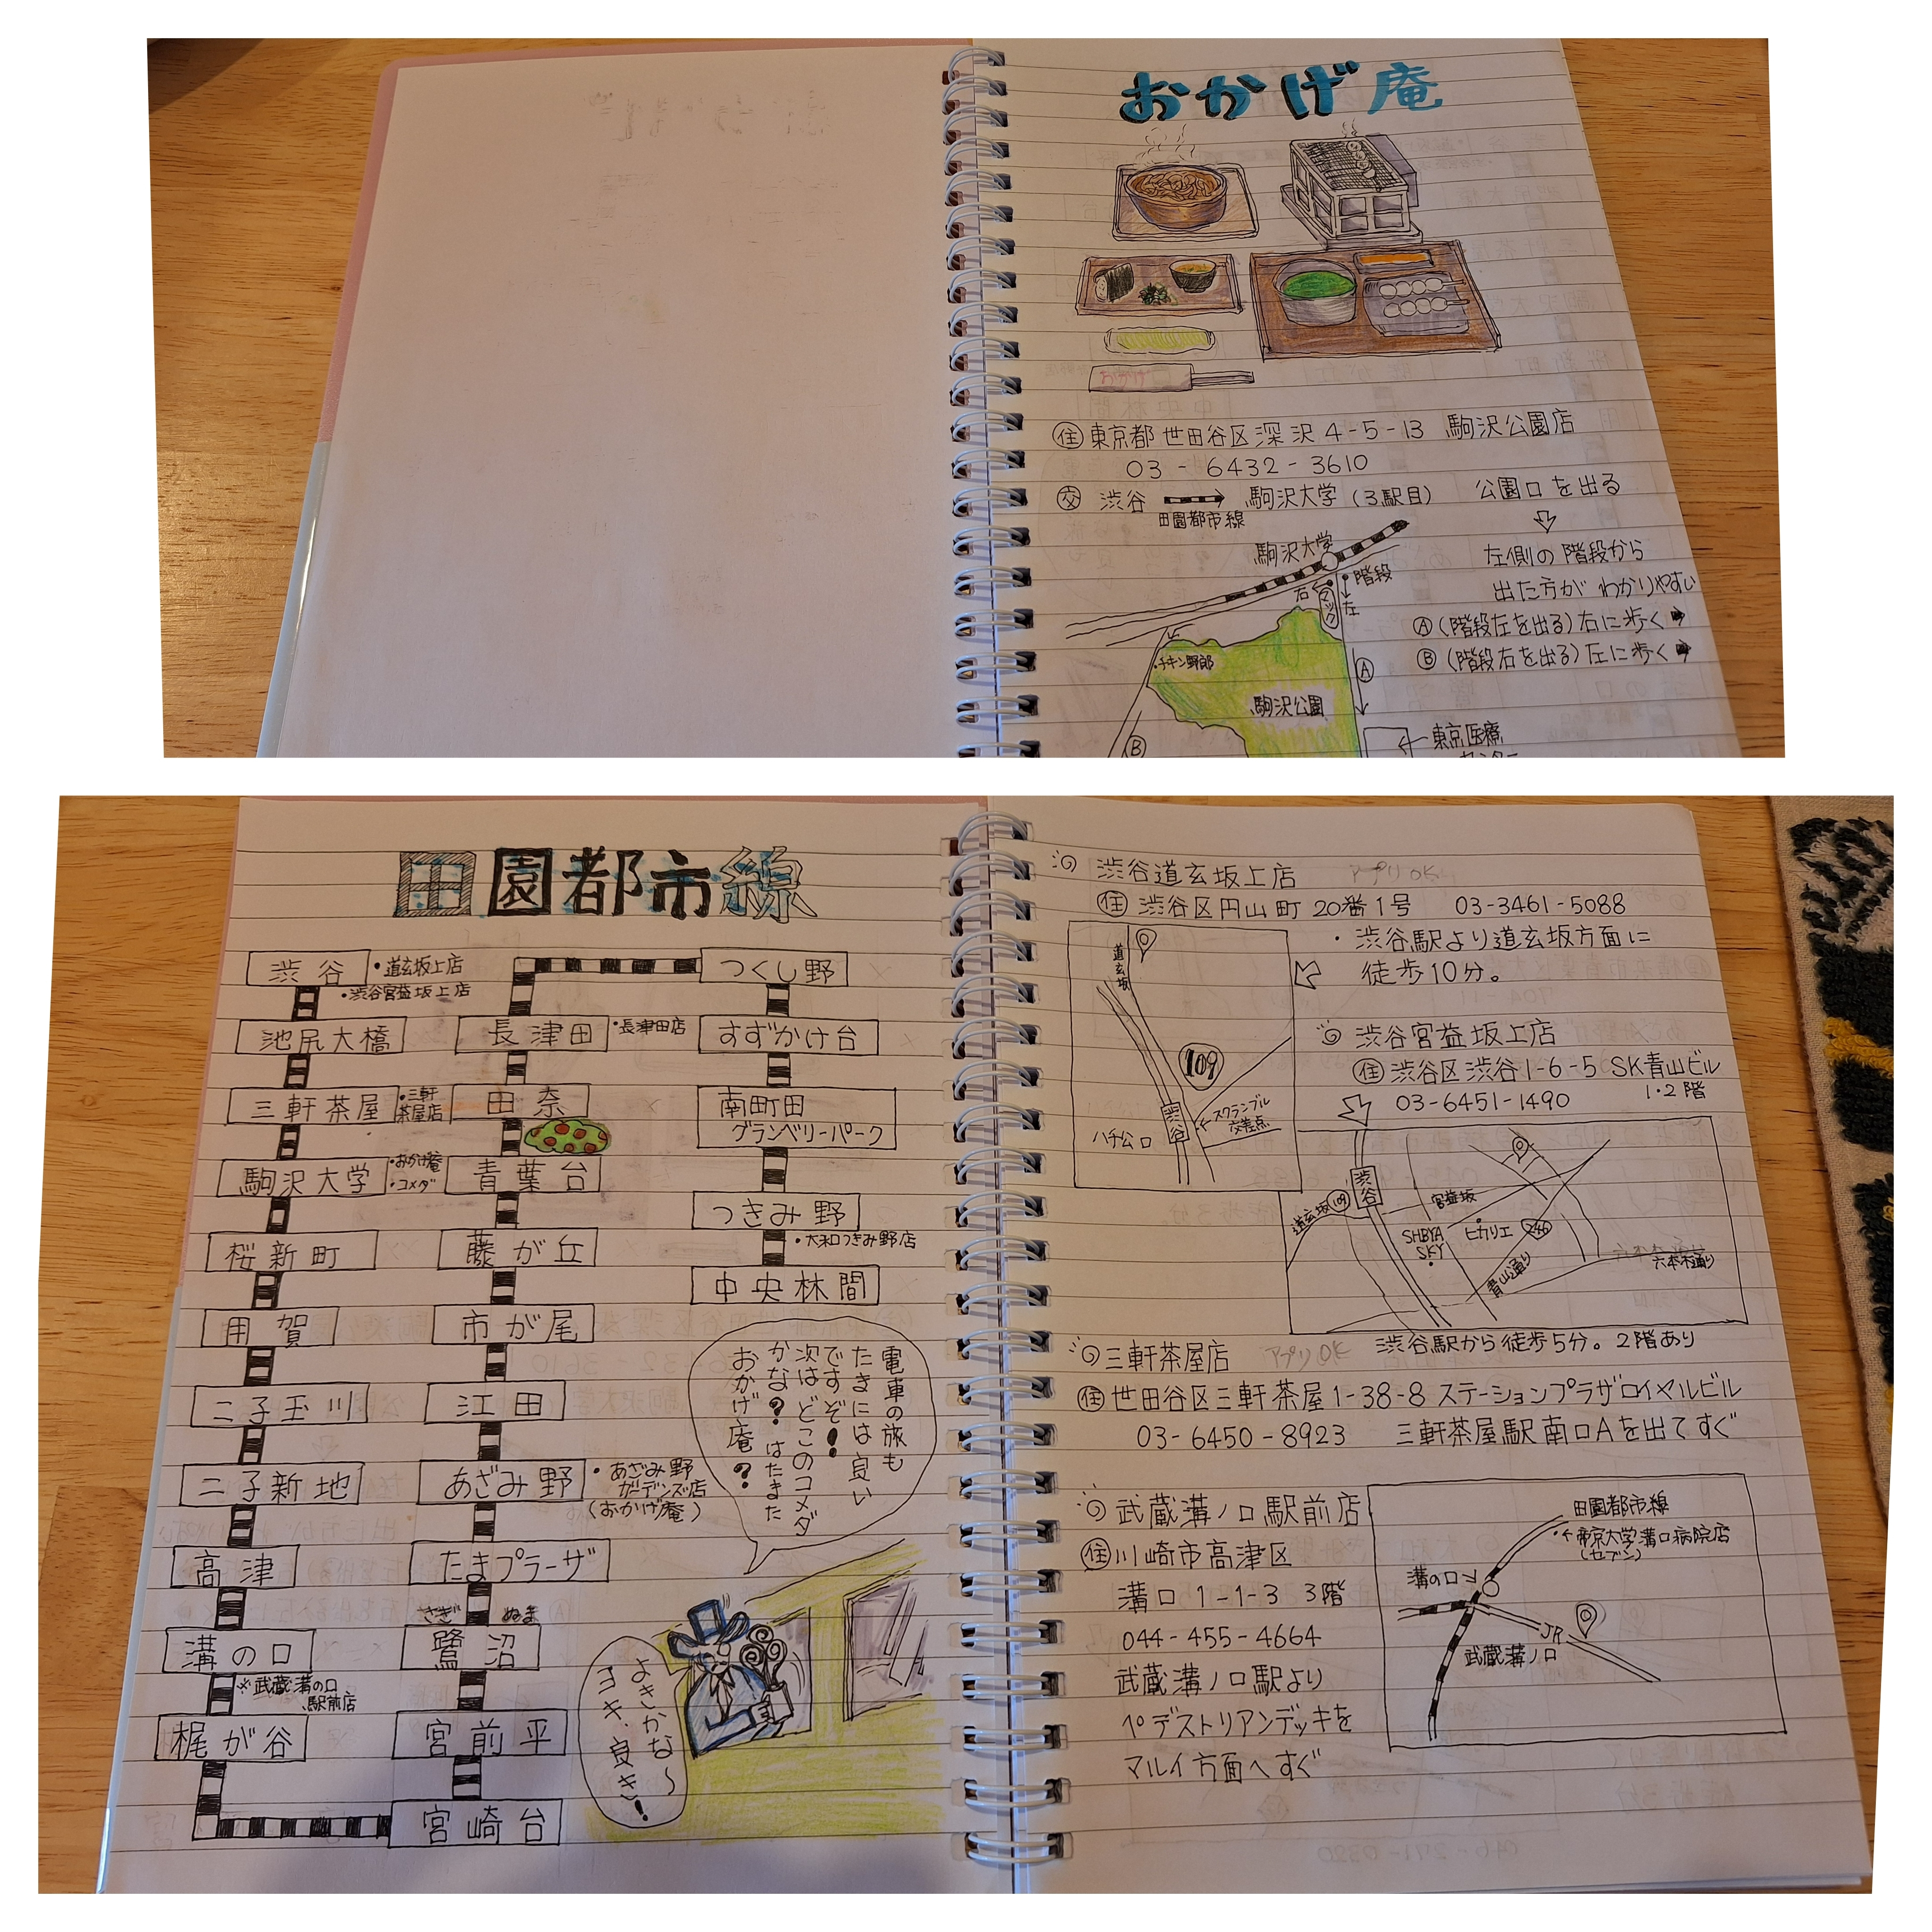 おかげ庵
おかげ
住 東京都世田谷区深沢4-5-13 駒沢公園店
03-6432-3610
交 渋谷 駒沢大学(3駅目) 公園口を出る
田園都市線
左側の階段から
出た方がわかりやすい
Ⓐ(階段左を出る)右に歩く
Ⓑ(階段右を出る)左に歩く
駒沢大学
階段
右
マック
左
チキン野郎
駒沢公園
Ⓐ
Ⓑ
東京医療
センター
田園都市線
渋谷
・道玄坂上店
・渋谷宮益坂上店
池尻大橋
三軒茶屋
・三軒
茶屋店
駒沢大学
・おかげ庵
・コメダ
桜新町
用賀
二子玉川
二子新地
高津
溝の口
※武蔵溝の口
駅前店
梶が谷
宮崎台
宮前平
さぎ ぬま
鷺沼
たまプラーザ
あざみ野
・あざみ野
ガーデンズ店
(おかげ庵)
江田
市が尾
藤が丘
青葉台
田奈
長津田
・長津田店
つくし野
すずかけ台
南町田
グランベリーパーク
つきみ野
・大和つきみ野店
中央林間
電車の旅も
たまには良い
ですぞ!
次はどこのコメダ
かな?はたまた
おかげ庵?
よきかな~
ヨキ、良き!
渋谷道玄坂上店 アプリOK
住 渋谷区円山町20番1号 03-3461-5088
・渋谷駅より道玄坂方面に
徒歩10分。
道玄坂
109
渋谷
ハチ公口
←スクランブル
交差点
渋谷宮益坂上店
住 渋谷区渋谷1-6-5 SK青山ビル
1・2階
03-6451-1490
渋谷
道玄坂
109
宮益坂
SHBYA
SKY
ヒカリエ
246
青山通り
六本木通り
渋谷駅から徒歩5分。2階あり
三軒茶屋店 アプリOK
住 世田谷区三軒茶屋1-38-8 ステーションプラザロイヤルビル
03-6450-8923 三軒茶屋駅南口Aを出てすぐ
武蔵溝ノ口駅前店
住 川崎市高津区
溝口1-1-3 3階
044-455-4664
武蔵溝ノ口駅より
ペデストリアンデッキを
マルイ方面へすぐ
田園都市線
・←帝京大学溝口病院店
(セブン)
溝の口
JR
武蔵溝ノ口